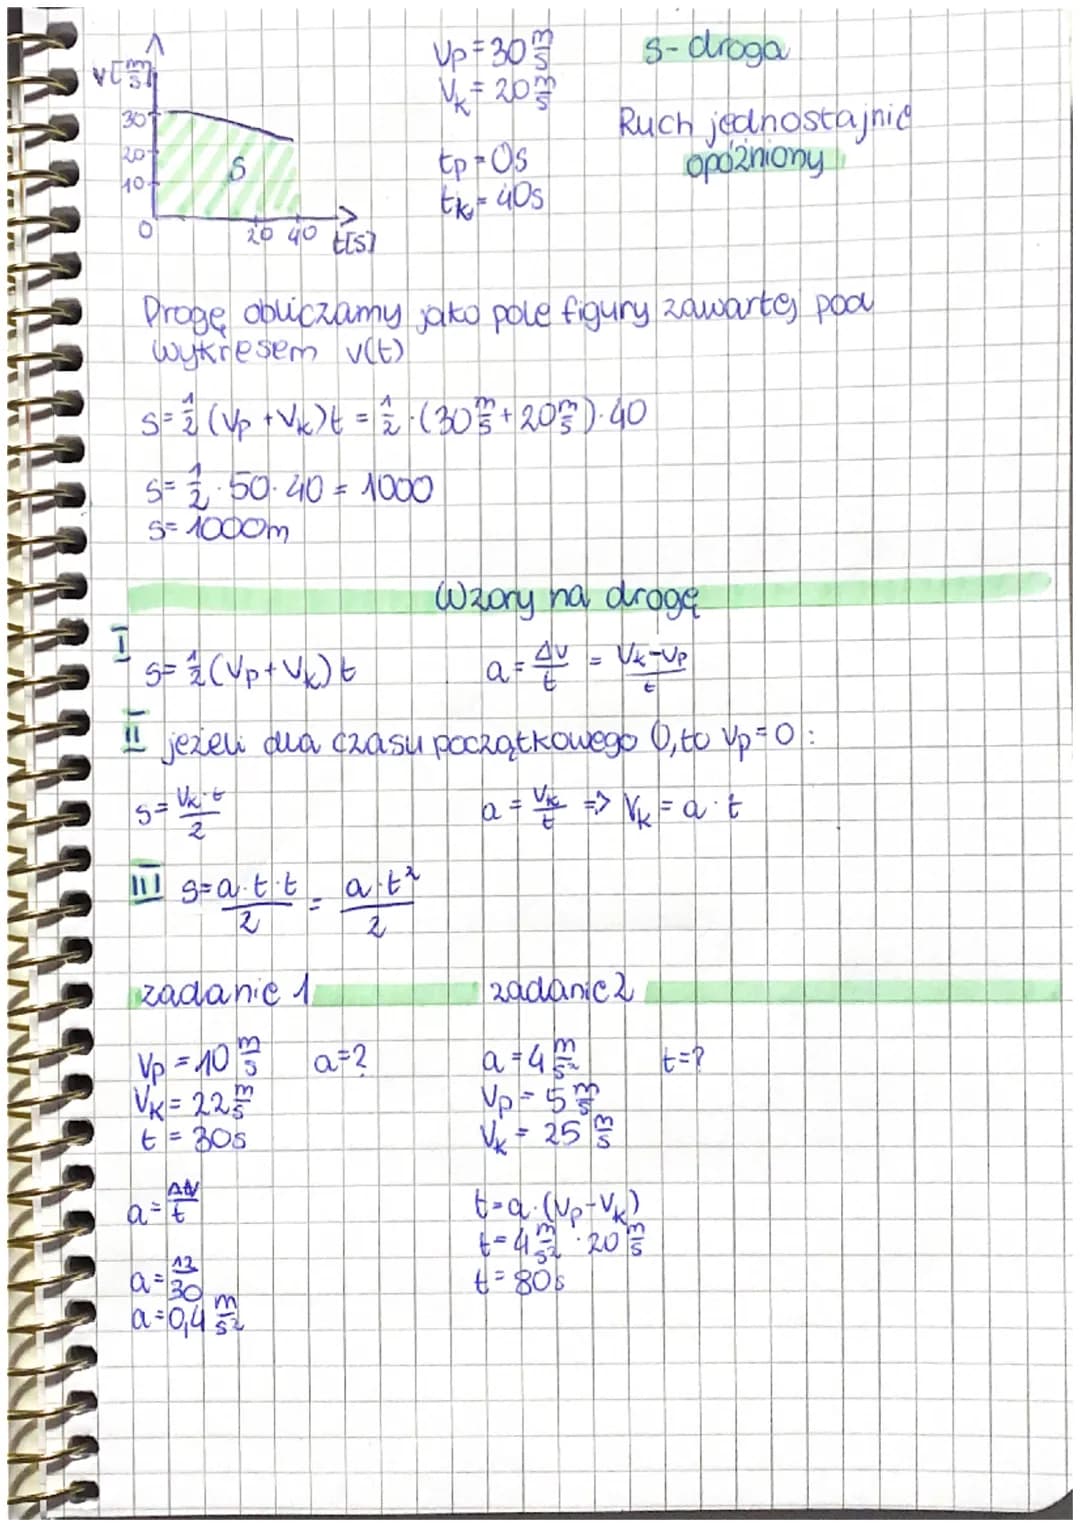 v[m/s]
30
20
10
0
S
20 40 t[s]
Vp = 30 m/s
Vk = 20 m/s
tp = 0s
tk = 40s
s - droga
Ruch jednostajnie
opóźniony
Drogę obliczamy jako pole figury zawartej pod
wykresem v(t)
s = 1/2 (Vp + Vk)t = 1/2 · (30 m/s + 20 m/s) · 40
s = 1/2 · 50 · 40 = 1000
s = 1000m
Wzory na drogę
I
s = 1/2 (Vp + Vk) t
a = Δv/t = Vk-Vp/t
II jeżeli dla czasu początkowego 0, to Vp = 0 :
s = Vk · t/2
a = Vk/t => Vk = a · t
III s = a · t · t/2 = a · t²/2
zadanie 1
Vp = 10 m/s a = ?
Vk = 22 m/s
t = 30s
a = Δv/t
a = 12/30
a = 0,4 m/s²
zadanie 2
a = 4 m/s² t = ?
Vp = 5 m/s
Vk = 25 m/s
t = a · (Vp - Vk)
t = 4 m/s² · 20 m/s
t = 80s